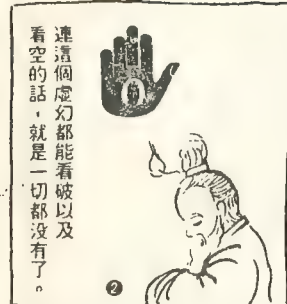 連這個虛幻都能看破以及
看空的話，就是一切都没有了。
❷